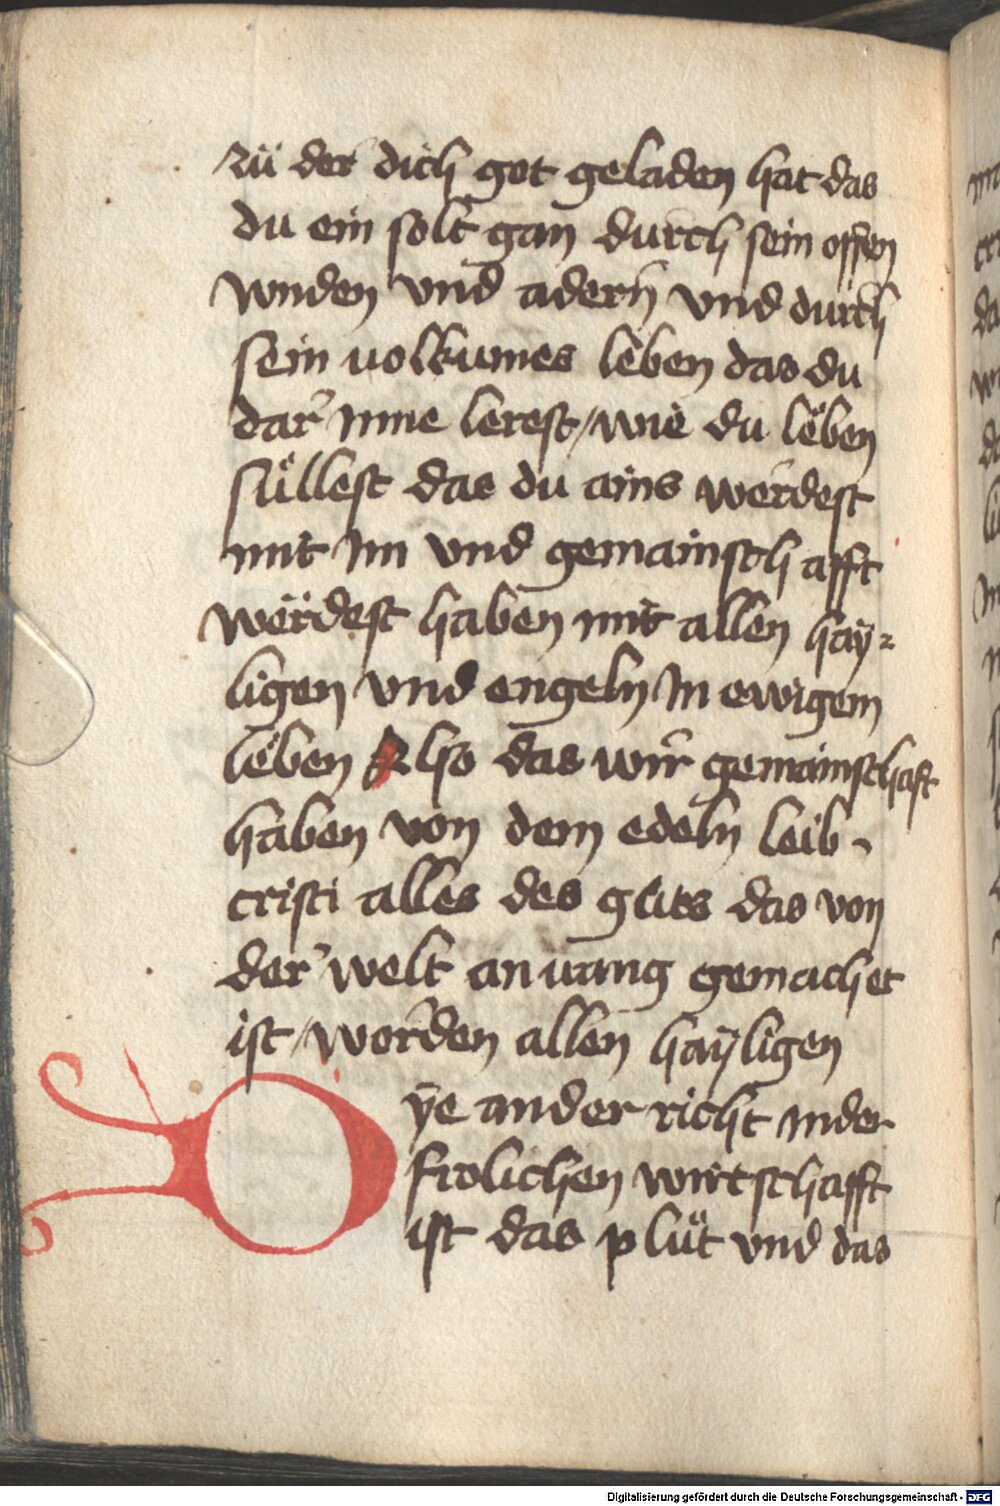 zü der dich got geladen hat das
du ein solt gan durch sein offen
wnden vnd adern vnd durch
sein uolkumes leben das du
dar Inne lerest / wie du leben
süllest das du ains werdest
mit Im vnd gemainschafft
werdest haben mit allen hay⸗
ligen vnd engeln In ewigem
leben Also das wir gemainschaft
haben von dem edeln leib
cristi alles des guts das von
der welt an uang gemachet
ist / worden allen hayligen
Dÿe ander richt In der
frolichen wirtschafft
ist das plüt vnd das
Digitalisierung gefördert durch die Deutsche Forschungsgemeinschaft - DFG